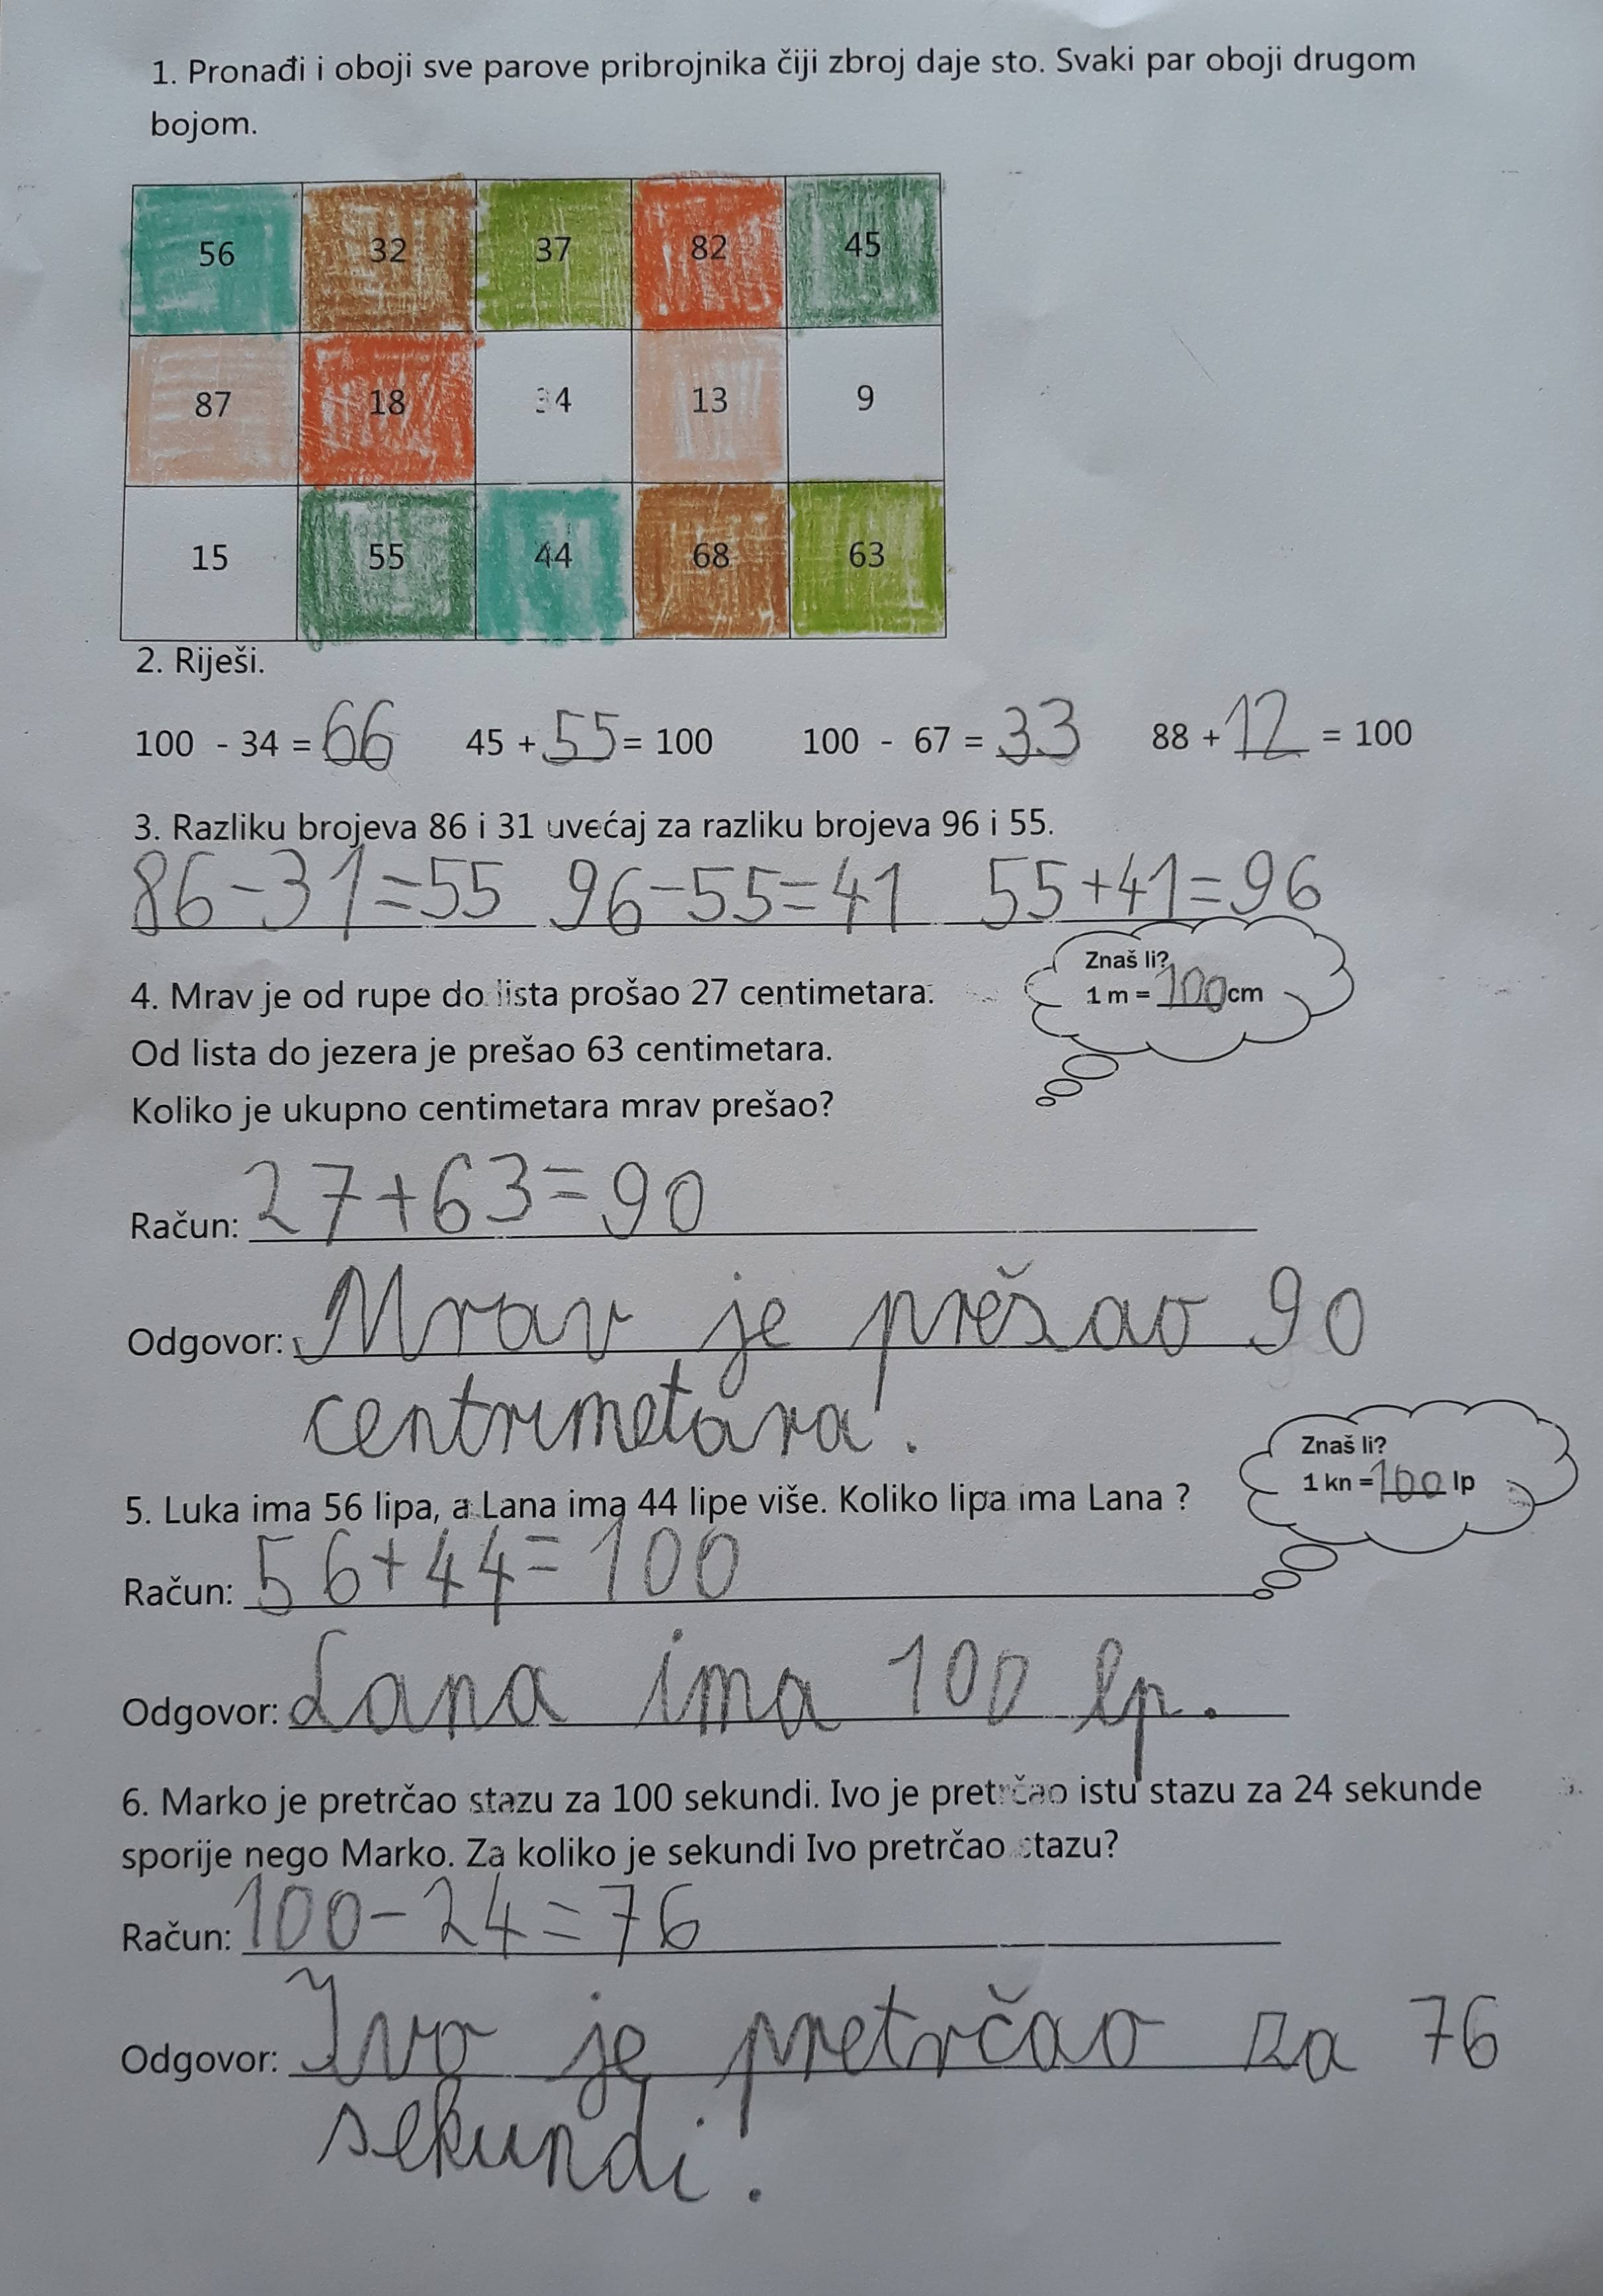 1. Pronađi i oboji sve parove pribrojnika čiji zbroj daje sto. Svaki par oboji drugom
bojom.
56 32 37 82 45
87 18 34 13 9
15 55 44 68 63
2. Riješi.
100 - 34 = 66 45 + 55 = 100 100 - 67 = 33 88 + 12 = 100
3. Razliku brojeva 86 i 31 uvećaj za razliku brojeva 96 i 55.
86-31=55 96-55=41 55+41=96
Znaš li?
1 m = 100 cm
4. Mrav je od rupe do lista prošao 27 centimetara.
Od lista do jezera je prešao 63 centimetara.
Koliko je ukupno centimetara mrav prešao?
Račun: 27+63=90
Odgovor: Mrav je prešao 90
centrimetara.
Znaš li?
1 kn = 100 lp
5. Luka ima 56 lipa, a Lana ima 44 lipe više. Koliko lipa ima Lana ?
Račun: 56+44=100
Odgovor: Lana ima 100 lp.
6. Marko je pretrčao stazu za 100 sekundi. Ivo je pretrčao istu stazu za 24 sekunde
sporije nego Marko. Za koliko je sekundi Ivo pretrčao stazu?
Račun: 100-24=76
Odgovor: Ivo je pretrčao za 76
sekundi.